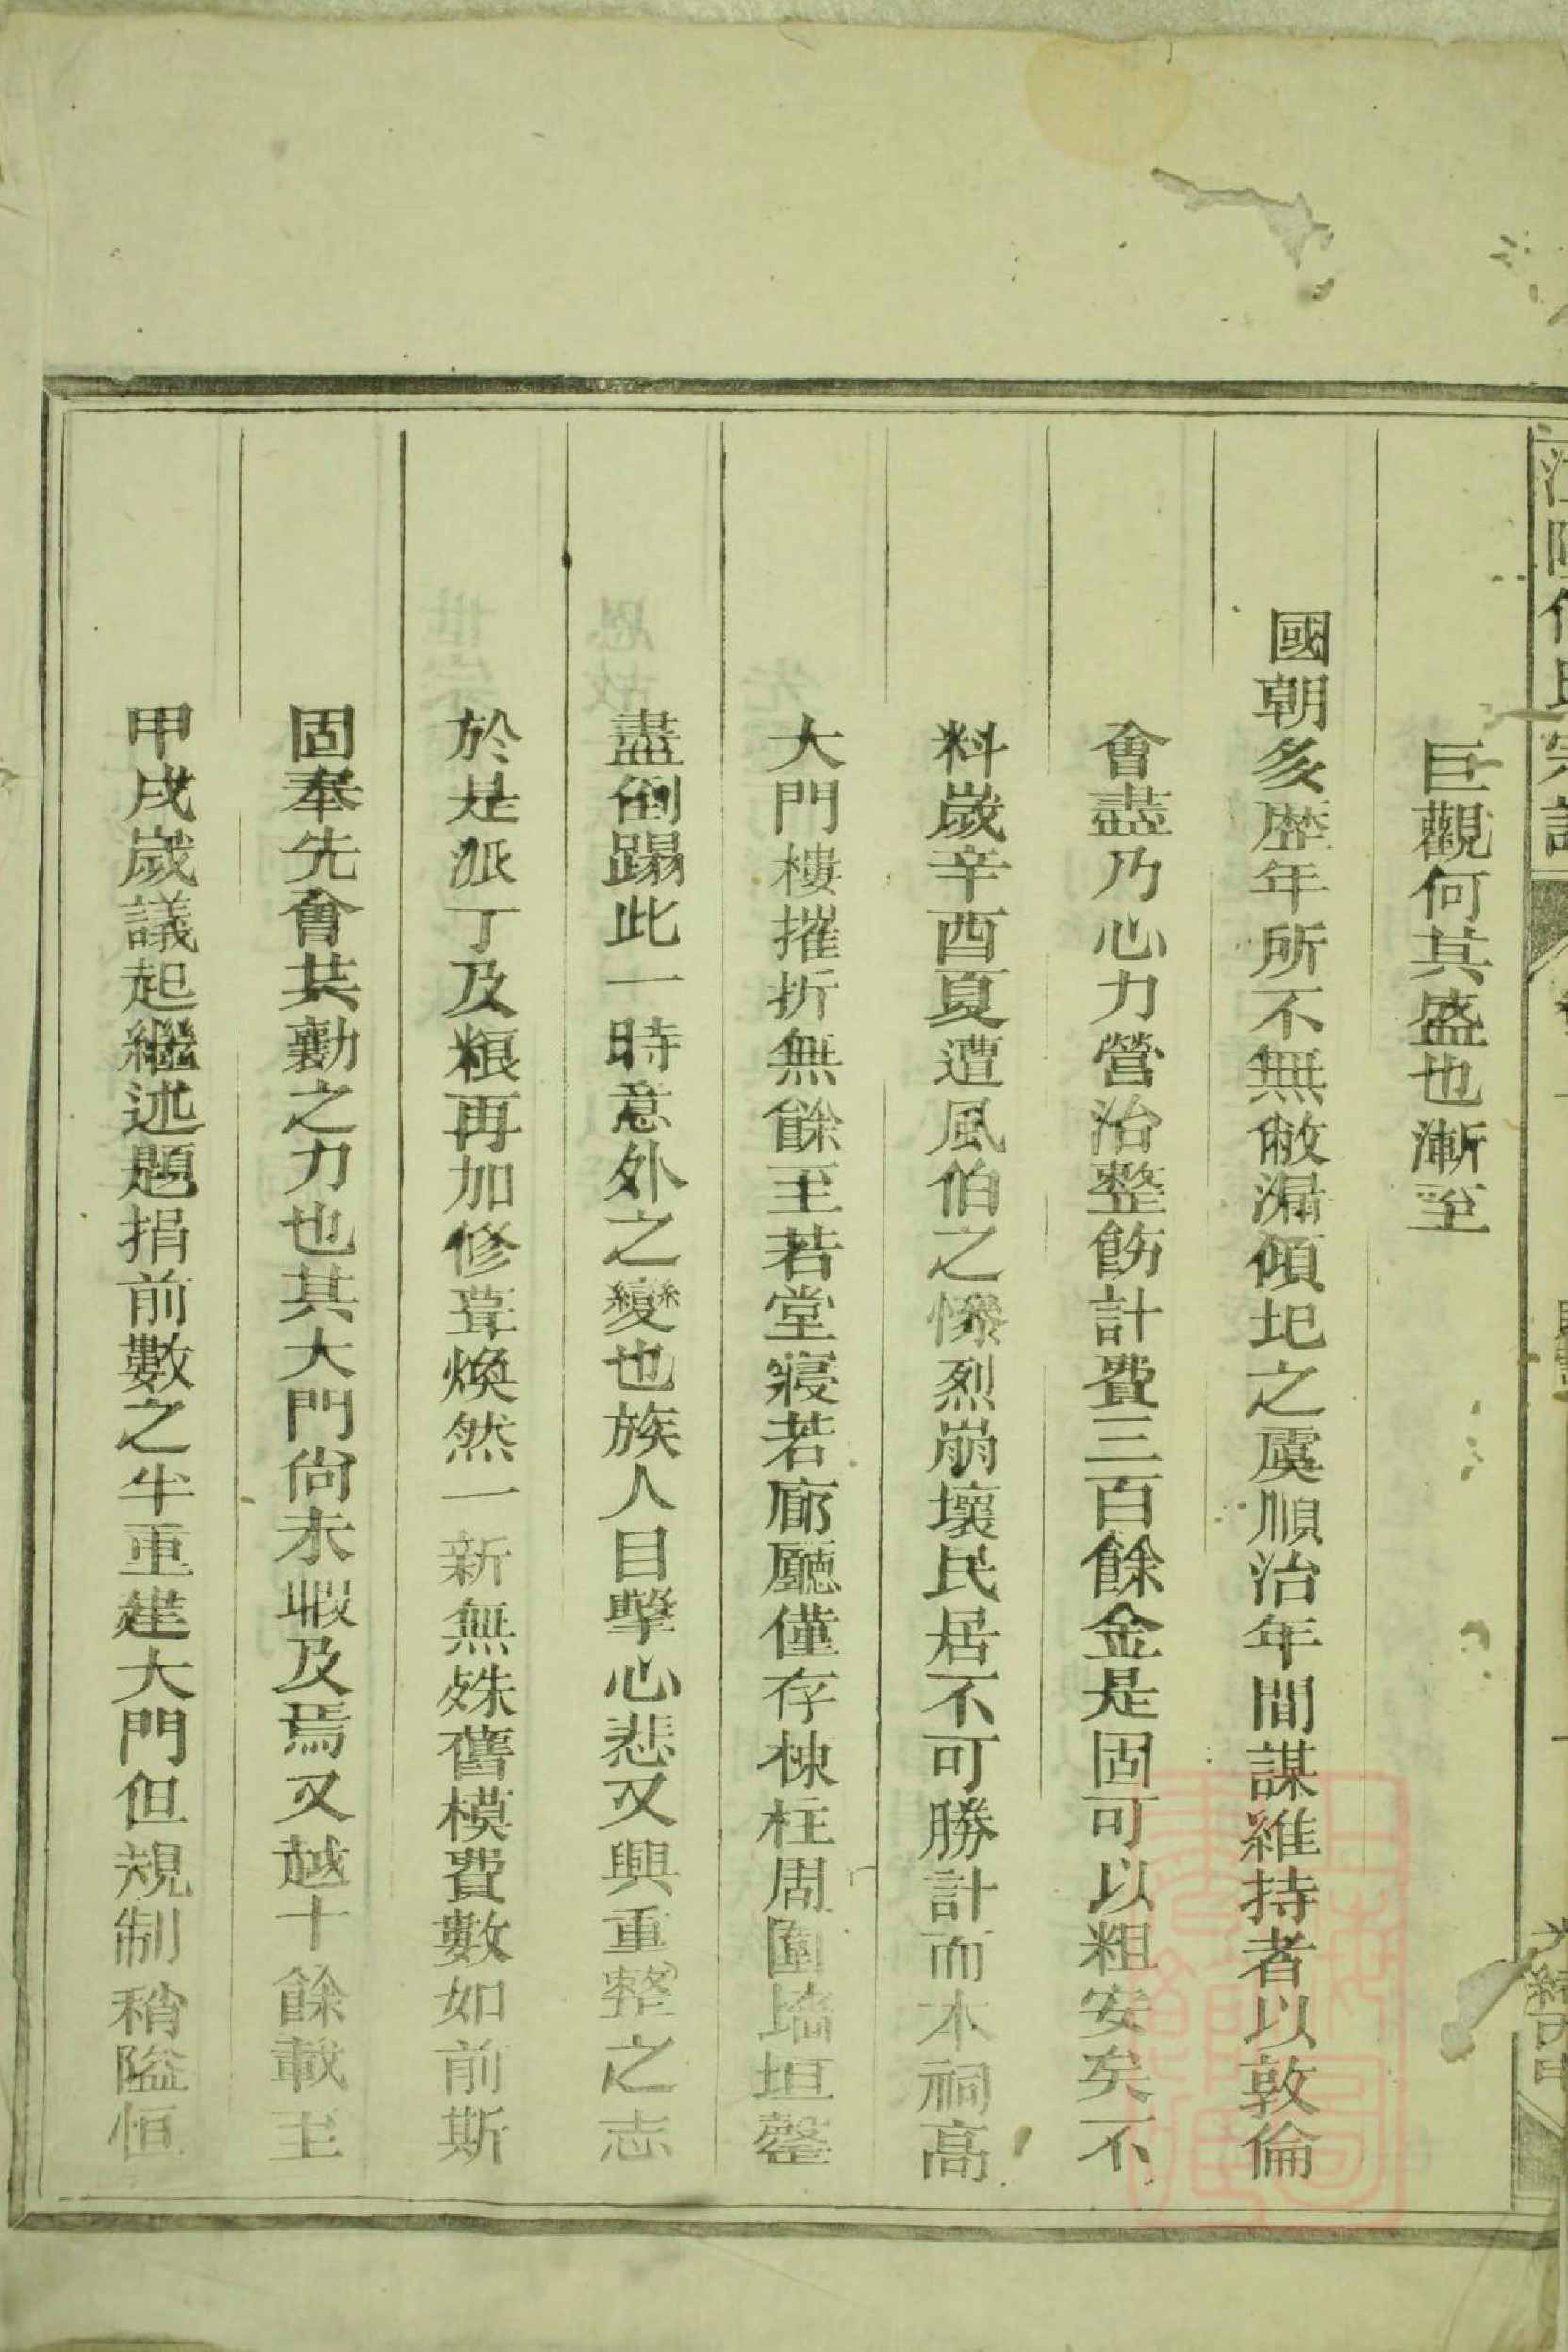 巨觀何其盛也漸至
國朝多歴年所不無敝漏傾圮之虞順治年間謀維持者以敦倫
會盡乃心力營治整飭計費三百餘金是固可以粗安矣不
料嵗辛酉夏遭風伯之慘烈崩壞民居不可勝計而本祠高
大門樓摧折無餘至若堂寢若廊廳僅存棟柱周圍墻垣罄
盡倒蹋此一時意外之變也族人目擊心悲又興重整之志
於是派丁及粮再加修葺煥然一新無殊舊模費數如前斯
固奉先會共勷之力也其大門尙未暇及焉又越十餘載至
甲戌嵗議起繼述題捐前數之半重建大門但規制稍隘恒